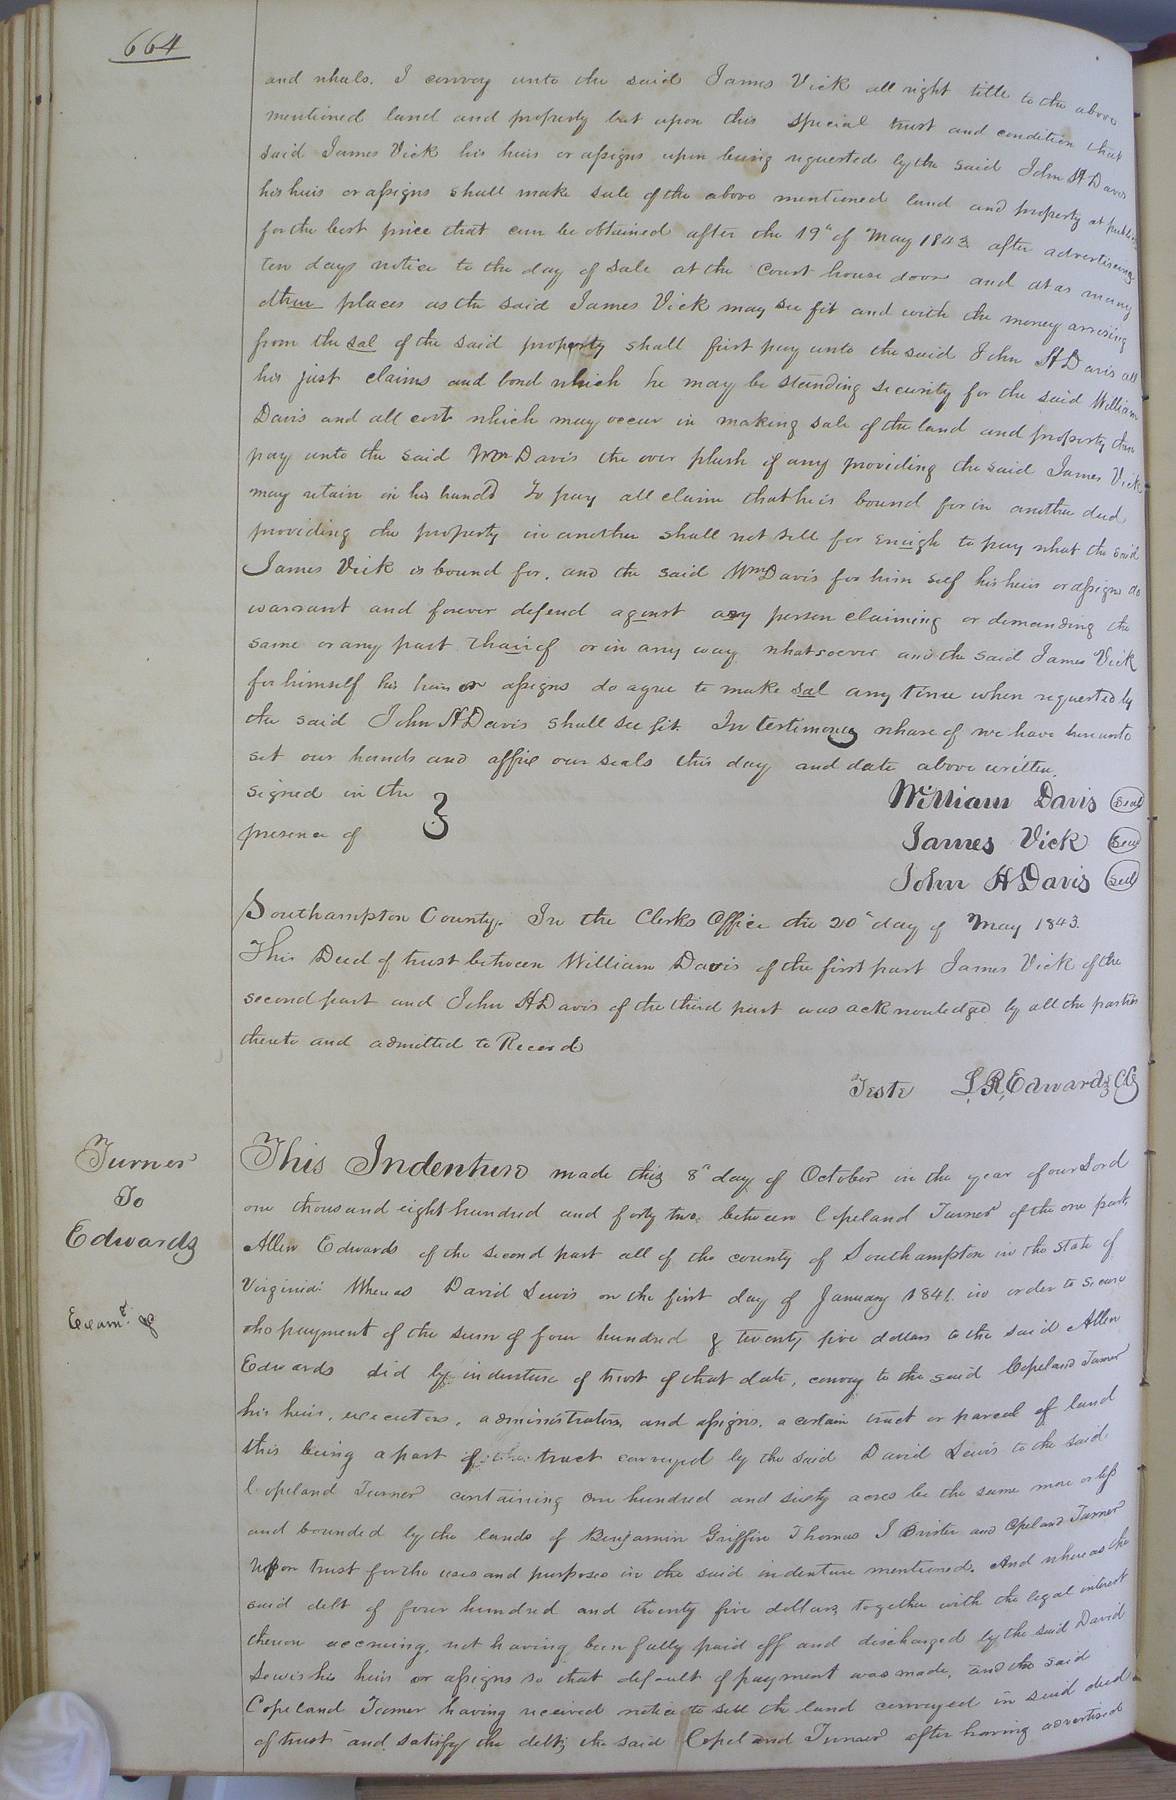 664
and whels. I convey unto the said James Vick all right title to the above
mentioned land and property but upon this special trust and condition that
said James Vick his heirs or assigns upon being requested by the said John H Davis
his heirs or assigns shall make sale of the above mentioned land and property at public
for the best price that can be obtained after the 19th of May 1843 after advertiseing
ten days notice to the day of sale at the Court house door and at as many
other places as the said James Vick may see fit and with the money arrising
from the sal of the said property shall first pay unto the said John H Davis all
his just claims and bond which he may be standing security for the said William
Davis and all cost which may occur in making sale of the land and property then
pay unto the said Wm Davis the over plush if any providing the said James Vick
may retain in his hands To pay all claim that he is bound for in another deed
providing the property in another shall not sell for enugh to pay what the said
James Vick is bound for. and the said Wm Davis for him self his heirs or assigns do
warrant and forever defend agenst any person claiming or demanding the
same or any part thairof or in any way whatsoever and the said James Vick
for himself his heirs or assigns do agree to make sal any time when requested by
the said John H Davis shall see fit. In testimoney whare of we have hereunto
set our hands and affix our seals this day and date above written.
signed in the } William Davis (seal)
presence of James Vick (seal)
John H Davis (seal)
Southampton County. In the Clerks Office the 20th day of May 1843.
This Deed of trust between William Davis of the first part James Vick of the
second part and John H Davis of the third part was acknowledged by all the parties
thereto and admitted to Record
Teste L. R. Edwards CC
Turner
To
Edwards
Examd. &
This Indenture made this 8th day of October in the year of our Lord
one thousand eight hundred and forty two, between Copeland Turner of the one part,
Allen Edwards of the second part all of the county of Southampton in the State of
Virginia: Whereas David Lewis on the first day of January 1841. in order to secure
the payment of the sum of four hundred & twenty five dollars to the said Allen
Edwards did by indenture of trust of that date, convey to the said Copeland Turner
his heirs, executors, administrators, and assigns, a certain tract or parcel of land
this being a part of the tract conveyed by the said David Lewis to the said
Copeland Turner containing one hundred and sixty acres be the same more or less
and bounded by the lands of Benjamin Griffin Thomas J Brister and Copeland Turner
Upon trust for the uses and purposes in the said indenture mentioned. And whereas the
said debt of four hundred and twenty five dollars, together with the legal interest
thereon accruing, not having been fully paid off and discharged by the said David
Lewis his heirs or assigns so that default of payment was made, and the said
Copeland Turner having received notice to sell the land conveyed in said deed
of trust and satisfy the debt, the said Copeland Turner after having advertised